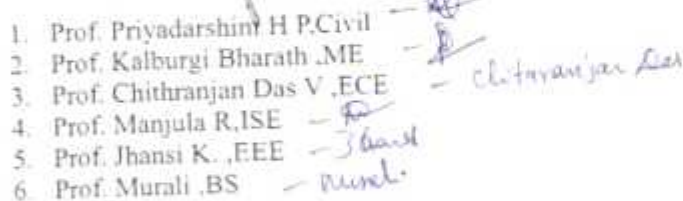 1. Prof. Priyadarshini H P.Civil -
2. Prof. Kalburgi Bharath .ME -
3. Prof. Chithranjan Das V ,ECE - Chitaranjan Das
4. Prof. Manjula R,ISE -
5. Prof. Jhansi K. ,EEE -
6. Prof. Murali .BS -